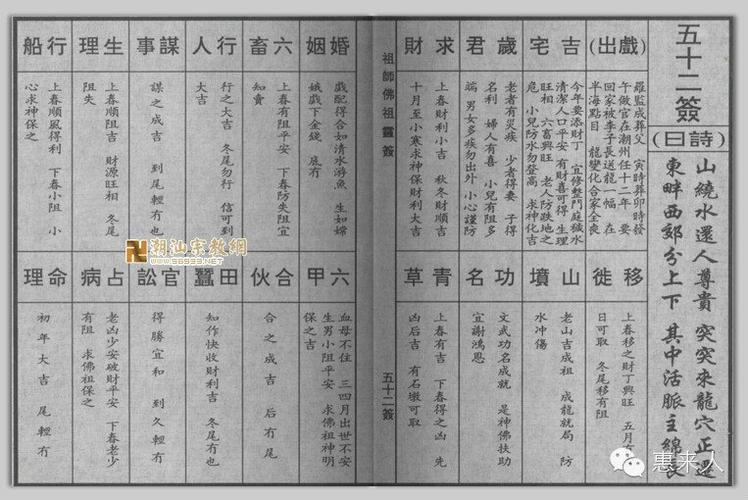 五十二簽
(詩曰)
山繞水還人尊貴　突突來龍穴正
東畔西郊分上下　其中活脈主綿長
(戲出)
羅監成葬父　寅時葬卯時發
午做官在潮州任十二年　要
回家被李子長送龍一幅　在
半海點目　龍變化合家全喪
移徙
上春移之財丁興旺　五月
日可取　冬尾移有阻
吉宅
今年要添財丁　宜修整門庭穢水
清潔人口平安　有財喜可得　生理
旺相　六畜興旺　老人防跌地之
危　小兒防水勿登高　求神化吉
山墳
老山吉成祖　成龍就局　防
水冲傷
歲君
老者有災疾　少者得妻　子得
名利　婦人有喜　小兒有阻多
端　男女多疾勿出外　小心謹防
功名
文武功名成就　是神佛扶助
宜謝鴻恩
求財
上春財利小吉　秋冬財順吉
十月至小寒求神保財利大吉
青草
上春有吉　下春得之凶　先
凶后吉　有石墩可取
祖師佛祖靈簽
五十二簽
婚姻
戲配得合如清水游魚　生如嫦
娥戲下金錢　底有
六甲
血母不佳　三四月出世不安
生男小阻平安　求佛祖神明
保之吉
六畜
上春有阻平安　下春防失阻宜
知賣
合伙
合之成吉　后有尾
行人
行之大吉　冬尾勿行　信可到
大吉
田蠶
知作快收財利吉　冬尾有也
謀事
謀之成吉　到尾輕有也
官訟
得勝宜和　到久輕有
生理
上春順阻吉　財源旺相　冬尾
阻失
占病
老凶少安破財平安　下春老少
有阻　求佛祖保之
行船
上春順風得利　下春小阻　小
心求神保之
命理
初年大吉　尾輕有
潮汕宗教網
www.96933.net
惠来人